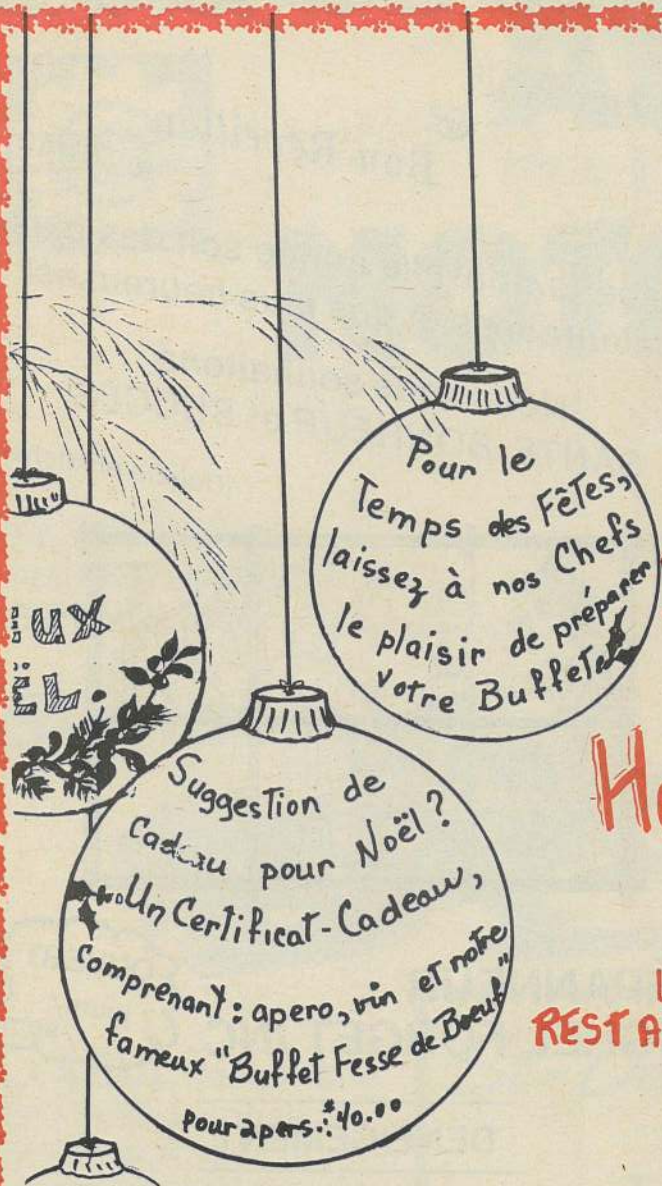 Pour le
Temps des Fêtes,
laissez à nos Chefs
le plaisir de préparer
votre Buffet
EUX
EL.
Suggestion de
cadeau pour Noël?
...Un Certificat-Cadeau,
comprenant: apero, vin et notre
fameux "Buffet Fesse de Boeuf"
pour 2 pers.: $40.00
H
RESTA